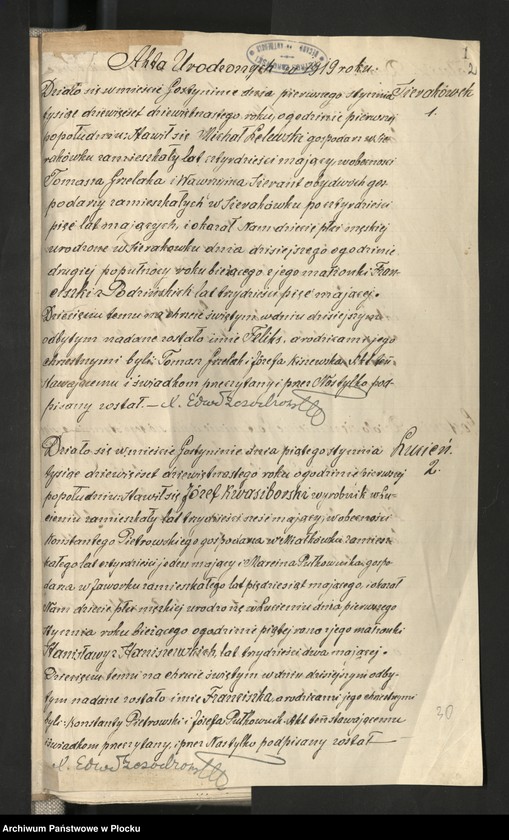 Akta Urodzonych z 1919 roku.
1
2
Działo się w mieście Gostyninie dnia pierwszego stycznia
Sierakówek
1.
tysiąc dziewięćset dziewiętnastego roku, o godzinie pierwszej
popołudniu. Stawił się Michał Zelewski gospodarz w Sie-
rakówku zamieszkały lat czterdzieści mający, w obecności
Tomasza Grzelaka i Wawrzyńca Sierant obydwóch gos-
podarzy zamieszkałych w Sierakówku po czterdzieści
pięć lat mających, i okazał Nam dziecię płci męskiej
urodzone w Sierakówku dnia dzisiejszego o godzinie
drugiej po północy roku bieżącego z jego małżonki Fran-
ciszki z Podzińskich lat trzydzieści pięć mającej.
Dziecięciu temu na chrzcie świętym w dniu dzisiejszym
odbytym nadane zostało imię Feliks, a rodzicami jego
chrzestnymi byli: Tomasz Grzelak i Józefa Kiszewska. Akt ten
stawającemu i świadkom przeczytany i przez Nas tylko pod-
pisany został. —
Działo się w mieście Gostyninie dnia piątego stycznia
Lucień
2.
tysiąc dziewięćset dziewiętnastego roku o godzinie pierwszej
popołudniu. Stawił się Józef Kwasiborski wyrobnik w Lu-
cieniu zamieszkały lat trzydzieści sześć mający, w obecności
Konstantego Pietrowskiego gospodarza w Miałkówku zamiesz-
kałego lat czterdzieści jeden mający i Marcina Pułkownika gospo-
darza w Jaworku zamieszkałego lat pięćdziesiąt mającego, i okazał
Nam dziecię płci męskiej urodzone w Lucieniu dnia pierwszego
stycznia roku bieżącego o godzinie piątej rano z jego małżonki
Stanisławy z Stanisiewskich lat trzydzieści dwa mającej.
Dziecięciu temu na chrzcie świętym w dniu dzisiejszym odby-
tym nadane zostało imię Franciszka, a rodzicami jego chrzestnymi
byli: Konstanty Pietrowski i Józefa Pułkownik. Akt ten stawającemu
i świadkom przeczytany, i przez Nas tylko podpisany został —
30
Archiwum Państwowe w Płocku